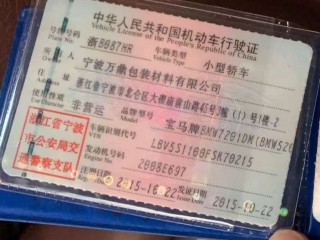 中华人民共和国机动车行驶证
Vehicle License of the People's Republic of China
号牌号码 浙B087HR 车辆类型 小型轿车
Plate No. Vehicle Type
所有人 宁波万鼎包装材料有限公司
Owner
住址 浙江省宁波市北仑区大碶
Address
使用性质 非营运 品牌型号 宝马牌BMW7201DM(BMW520
Use Character Model
浙江省宁波
市公安局交
通警察支队
车辆识别代号 LBV5S1100FSK70215
VIN
发动机号码 2008E697
Engine No.
注册日期 2015-10-22 发证日期 2015-10-22
Register Date Issue Date